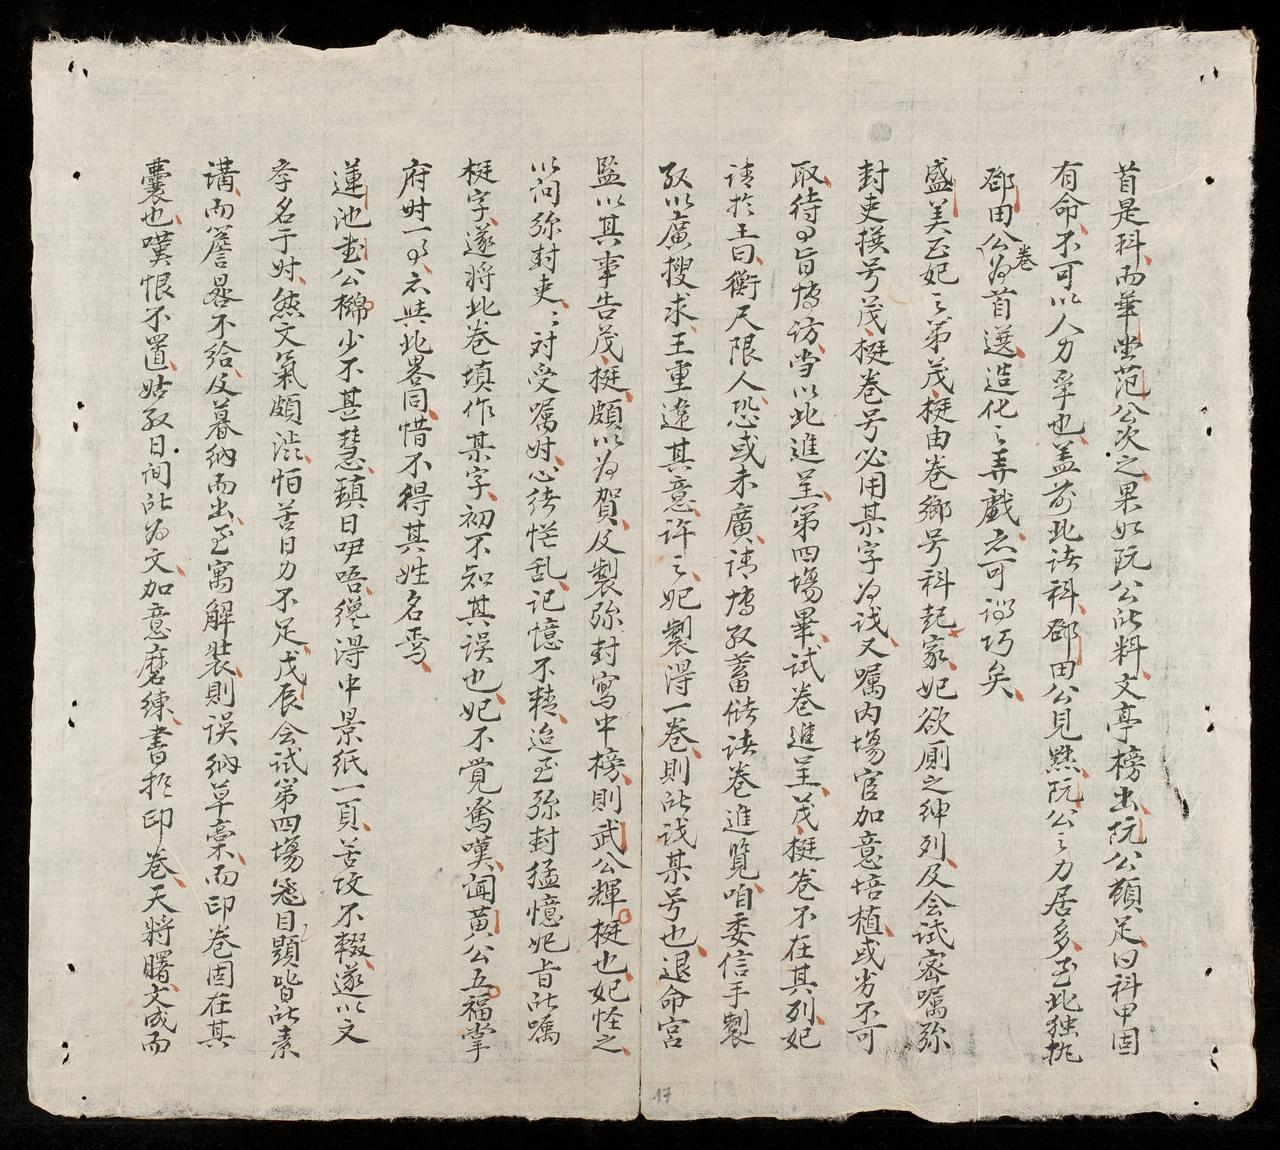 首是科而華坐范公次之果如阮公所料文亭榜出阮公頓足曰科甲固
有命不可以人力爭也盖前此諸科鄧田公見黜阮公之力居多至此独批
鄧田公卷為首選造化之弄戲亦可謂巧矣
盛美正妃之弟茂梃由卷鄉号科起家妃欲厠之紳列及会試密嘱弥
封吏撰号茂梃卷号必用某字為識又嘱内場官加意培植或劣不可
取待旨博访当以此進呈第四場畢試卷進呈茂梃卷不在其列妃
請於王曰衡尺限人恐或未廣請博取蓄儲諸卷進覧咱委信手製
取以廣搜求王重違其意許之妃製得一卷則所識某号也退命宮
監以其事告茂梃頗以為賀及製弥封寫中榜則武公輝梃也妃怪之
以问弥封吏〻対受嘱时心緒怳乱記憶不精迨至弥封猛憶妃旨所嘱
梃字遂将此卷填作某字初不知其误也妃不覚驚嘆闻黃公五福掌
府时一亦與此畧同惜不得其姓名焉
蓮池公櫛少不甚慧鎮日咿唔纔得中景紙一頁苦攻不輟遂以文
字名于时然文氣頗澁怕苦日力不足戊辰会試第四場題目顕皆所素
講而簷晷不給及暮纳而出至寓解裝則误纳草藁而印卷固在其
囊也嘆恨不置姑取日间所為文加意磨練書於印卷天將曙文成而